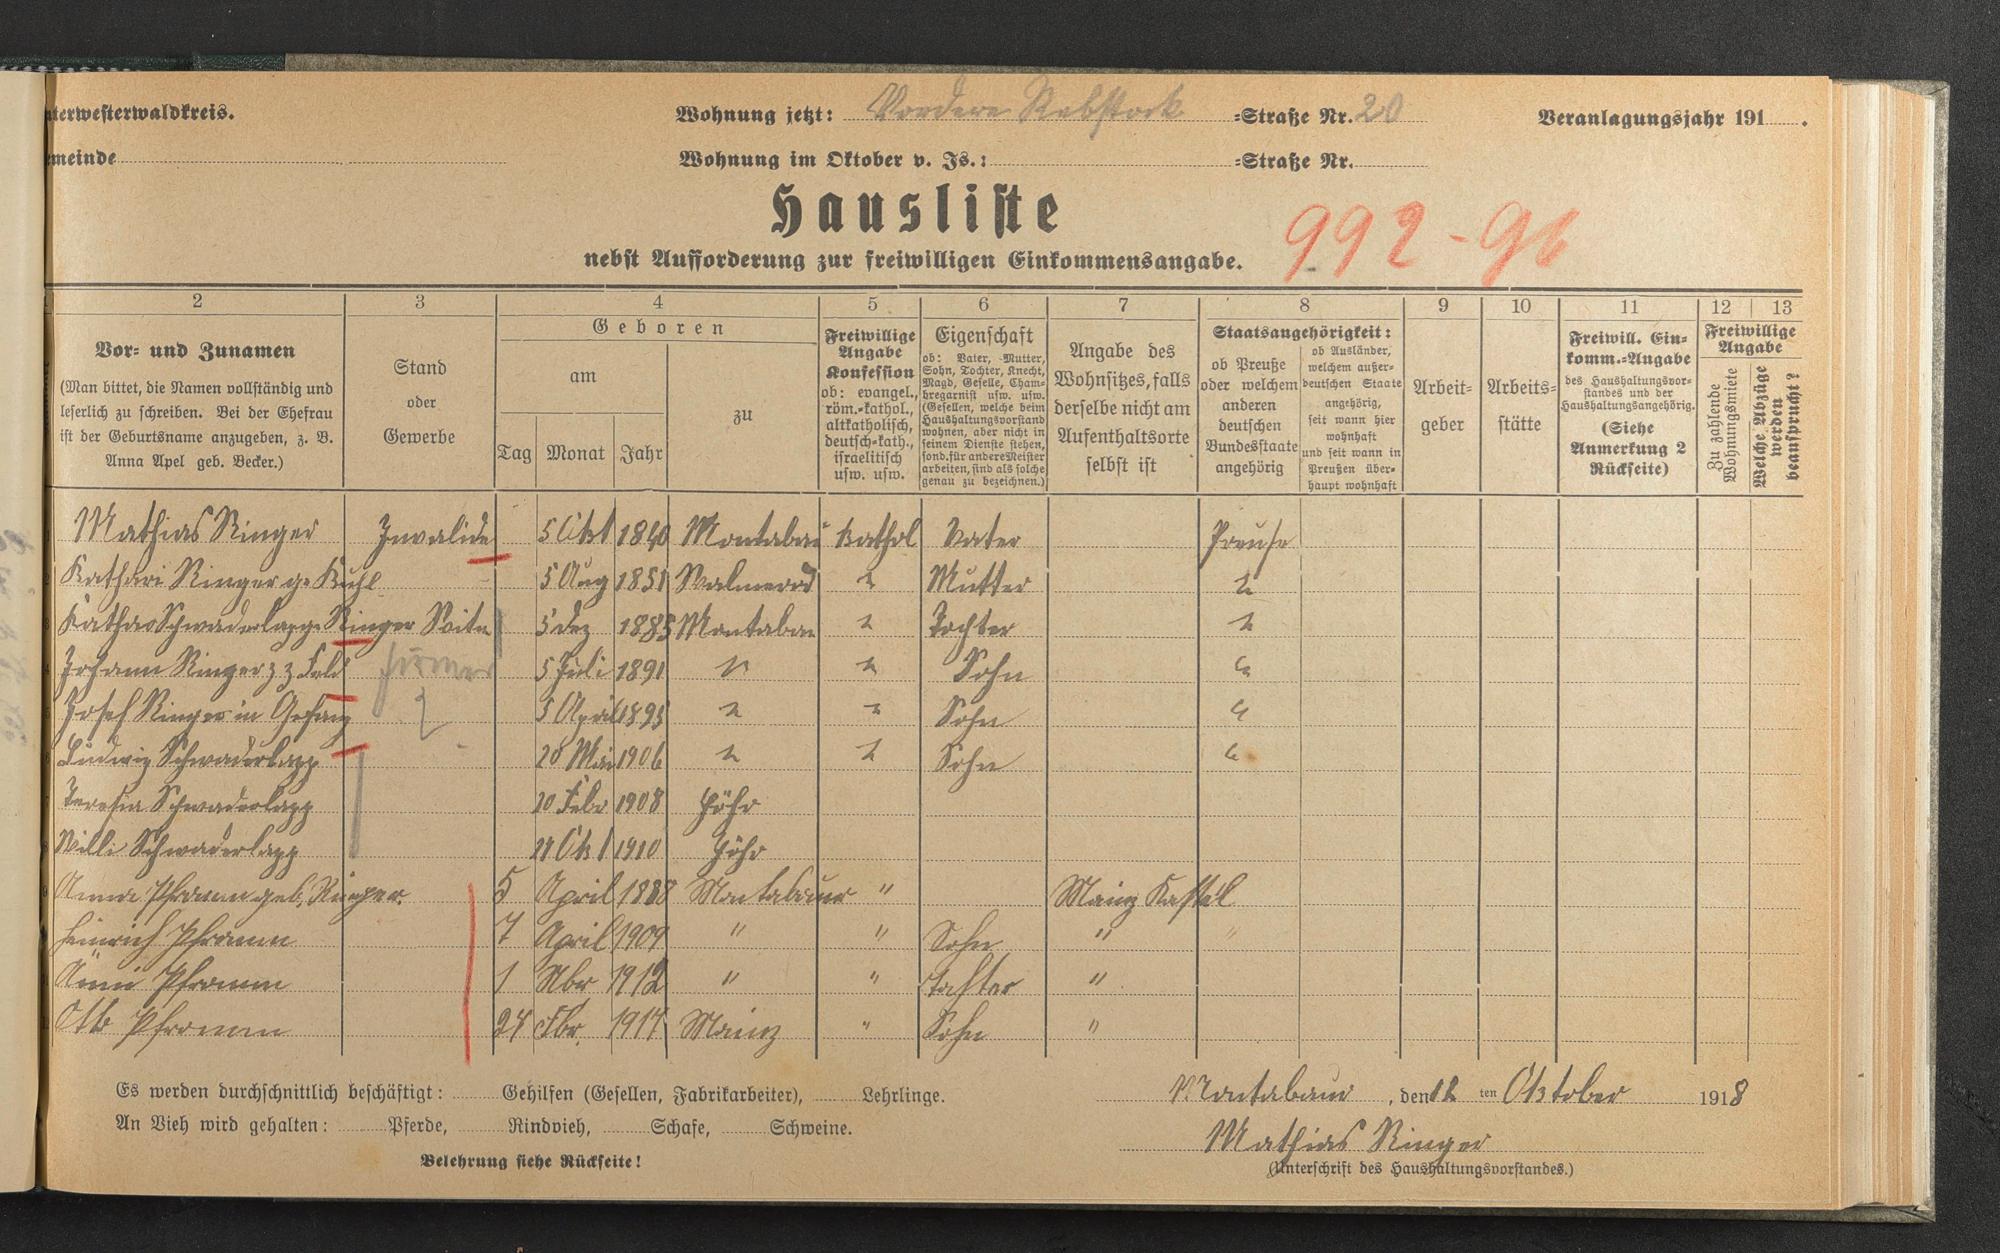 terwesterwaldkreis.
Wohnung jetzt: Vordere Rebstock =Straße Nr. 20
Veranlagungsjahr 191 .
meinde
Wohnung im Oktober v. Js.: =Straße Nr.
Hausliste
992-96
nebst Aufforderung zur freiwilligen Einkommensangabe.
2 3 4 5 6 7 8 9 10 11 12 13
Vor- und Zunamen
(Man bittet, die Namen vollständig und
leserlich zu schreiben. Bei der Ehefrau
ist der Geburtsname anzugeben, z. B.
Anna Apel geb. Becker.)
Stand
oder
Gewerbe
Geboren
am
Tag Monat Jahr
zu
Freiwillige
Angabe
Konfession
ob: evangel.,
röm.-kathol.,
altkatholisch,
deutsch-kath.,
israelitisch
usw. usw.
Eigenschaft
ob: Vater, Mutter,
Sohn, Tochter, Knecht,
Magd, Geselle, Cham-
bregarnist usw. usw.
(Gesellen, welche beim
Haushaltungsvorstand
wohnen, aber nicht in
seinem Dienste stehen,
sond. für andere Meister
arbeiten, sind als solche
genau zu bezeichnen.)
Angabe des
Wohnsitzes, falls
derselbe nicht am
Aufenthaltsorte
selbst ist
Staatsangehörigkeit:
ob Preuße
oder welchem
anderen
deutschen
Bundesstaate
angehörig
ob Ausländer,
welchem außer-
deutschen Staate
angehörig,
seit wann hier
wohnhaft
und seit wann in
Preußen über-
haupt wohnhaft
Arbeit-
geber
Arbeits-
stätte
Freiwill. Ein-
komm.-Angabe
des Haushaltungsvor-
standes und der
Haushaltungsangehörig.
(Siehe
Anmerkung 2
Rückseite)
Freiwillige
Angabe
Zu zahlende
Wohnungsmiete
Welche Abzüge
werden
beansprucht?
Mathias Ringer Invalide 5 Okt 1840 Montabau Kathol Vater Preuße
Kathari Ringer ge Kuhl 5 Aug 1851 Walmerod " Mutter "
Kathar Schwaderlapp ge Ringer Witw 5 Dez 1885 Montabau " Tochter "
Johann Ringer z z Feld 5 Juli 1891 " " Sohn "
Josef Ringer in Gefang 5 April 1895 " " Sohn "
Ludwig Schwaderlapp 20 Mai 1906 " " Sohn "
Teresia Schwaderlapp 20 Febr 1908 Höhr
Willi Schwaderlapp Okt 1910 Höhr
Anna Pframm geb. Ringer. 5 April 1888 Montabaur " Mainz Kastel
Heinrich Pframm 7 April 1909 " " Sohn " "
Änni Pframm 1 Nbr 1912 " " Tochter "
Otto Pframm 24 Fbr. 1917 Mainz " Sohn "
Es werden durchschnittlich beschäftigt: Gehilfen (Gesellen, Fabrikarbeiter), Lehrlinge.
Montabaur , den 12 ten Oktober 1918
An Vieh wird gehalten: Pferde, Rindvieh, Schafe, Schweine.
Mathias Ringer
Belehrung siehe Rückseite!
(Unterschrift des Haushaltungsvorstandes.)